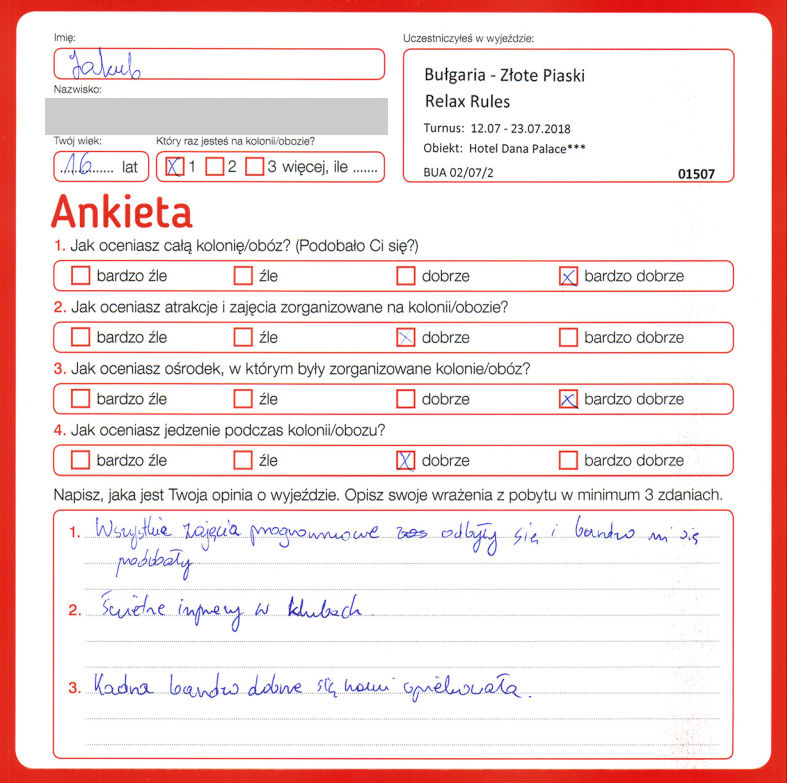 Imię:
Jakub
Uczestniczyłeś w wyjeździe:
Bułgaria - Złote Piaski
Relax Rules
Turnus: 12.07 - 23.07.2018
Obiekt: Hotel Dana Palace***
BUA 02/07/2
01507
Nazwisko:
Twój wiek:
..16...... lat
Który raz jesteś na kolonii/obozie?
X 1 2 3 więcej, ile .......
Ankieta
1. Jak oceniasz całą kolonię/obóz? (Podobało Ci się?)
bardzo źle źle dobrze X bardzo dobrze
2. Jak oceniasz atrakcje i zajęcia zorganizowane na kolonii/obozie?
bardzo źle źle X dobrze bardzo dobrze
3. Jak oceniasz ośrodek, w którym były zorganizowane kolonie/obóz?
bardzo źle źle dobrze X bardzo dobrze
4. Jak oceniasz jedzenie podczas kolonii/obozu?
bardzo źle źle X dobrze bardzo dobrze
Napisz, jaka jest Twoja opinia o wyjeździe. Opisz swoje wrażenia z pobytu w minimum 3 zdaniach.
1. Wszystkie zajęcia programowe odbyły się i bardzo mi się
podobały
2. Świetne imprezy w klubach
3. Kadra bardzo dobrze się nami opiekowała.